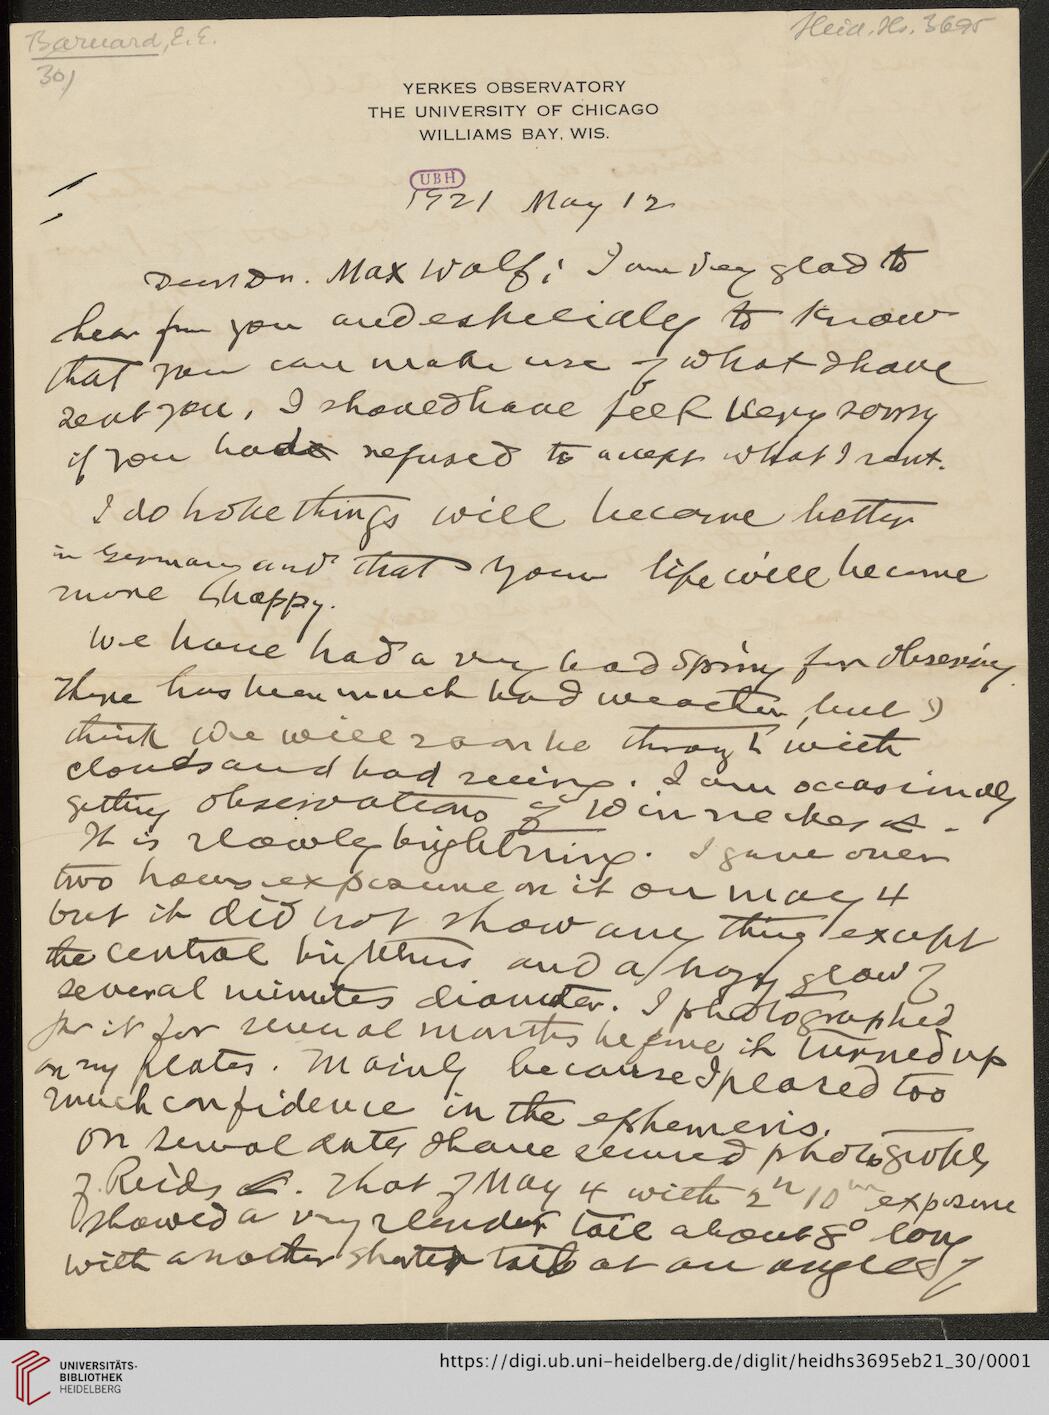 Barnard, E. E.
Heid. Hs. 3695
30)
YERKES OBSERVATORY
THE UNIVERSITY OF CHICAGO
WILLIAMS BAY, WIS.
UBH
1921 May 12
Dear Dr. Max Wolf; I am very glad to
hear from you and especially to know
that you can make use of what I have
sent you, I should have feel very sorry
if you had refused to accept what I sent.
I do hope things will become better
in Germany and that your life will become
more happy.
We have had a very bad spring for observing
There has been much bad weather, but I
think we will soon be through with
clouds and bad seeing. I am occasionally
getting observations of Winneckes
It is slowly brightning. I gave over
two hours exposure on it on May 4
but it did not show any thing except
the central brightness and a hazy glow of
several minutes diameter. I photographed
for it for several months before it turned up
on my plates. Mainly because I placed too
much confidence in the ephemeris.
On several dates I have secured photographs
of Reids. That of May 4 with 2h 10m exposure
showed a very slender tail about 8° long
with another shorter tail at an angle of
UNIVERSITÄTS-
BIBLIOTHEK
HEIDELBERG
https://digi.ub.uni-heidelberg.de/diglit/heidhs3695eb21_30/0001